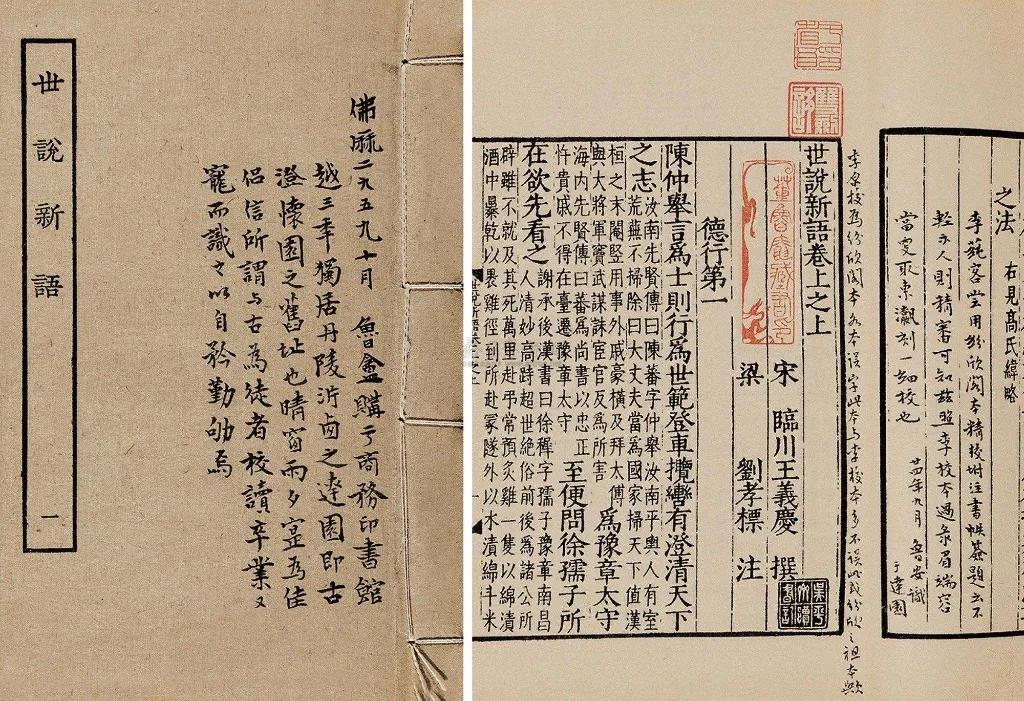 世說新語
一
佛厤二九五九十月 魯盦購于商務印書館
越三秊獨居丹陵沂西之達園即古
澄懷園之舊址也晴窗雨夕寔為佳
侶信所謂与古為徒者校讀卒業又
寵而識之以自矜勤劬焉
之法 右見高氏緯略
李蒓客嘗用紛欣閣本精校附注書帙簽題云不
輕示人則精審可知茲照李校本過录眉端容
當更取東瀛刻一細校也
廿四年九月 魯安識
于達園
本誤字此本与李校本多不誤此或紛欣之祖本歟
世說新語卷上之上
宋 臨川王義慶 撰
梁 劉孝標 注
德行第一
陳仲舉言為士則行為世範登車攬轡有澄清天下
之志
汝南先賢傳曰陳蕃字仲舉汝南平輿人有室
荒蕪不掃除曰大丈夫當為國家掃天下值漢
桓之末閹豎用事外戚豪橫及拜太傅
與大將軍竇武謀誅宦官反為所害
為豫章太守
海內先賢傳曰蕃為尚書以忠正
忤貴戚不得在臺遷豫章太守
至便問徐孺子所
在欲先看之
謝承後漢書曰徐穉字孺子豫章南昌
人清妙高跱超世絕俗前後為諸公所
辟雖不就及其死萬里赴弔常預炙雞一隻以綿漬
酒中暴乾以裹雞徑到所赴冢隧外以水漬綿斗米
董魯盦藏書印